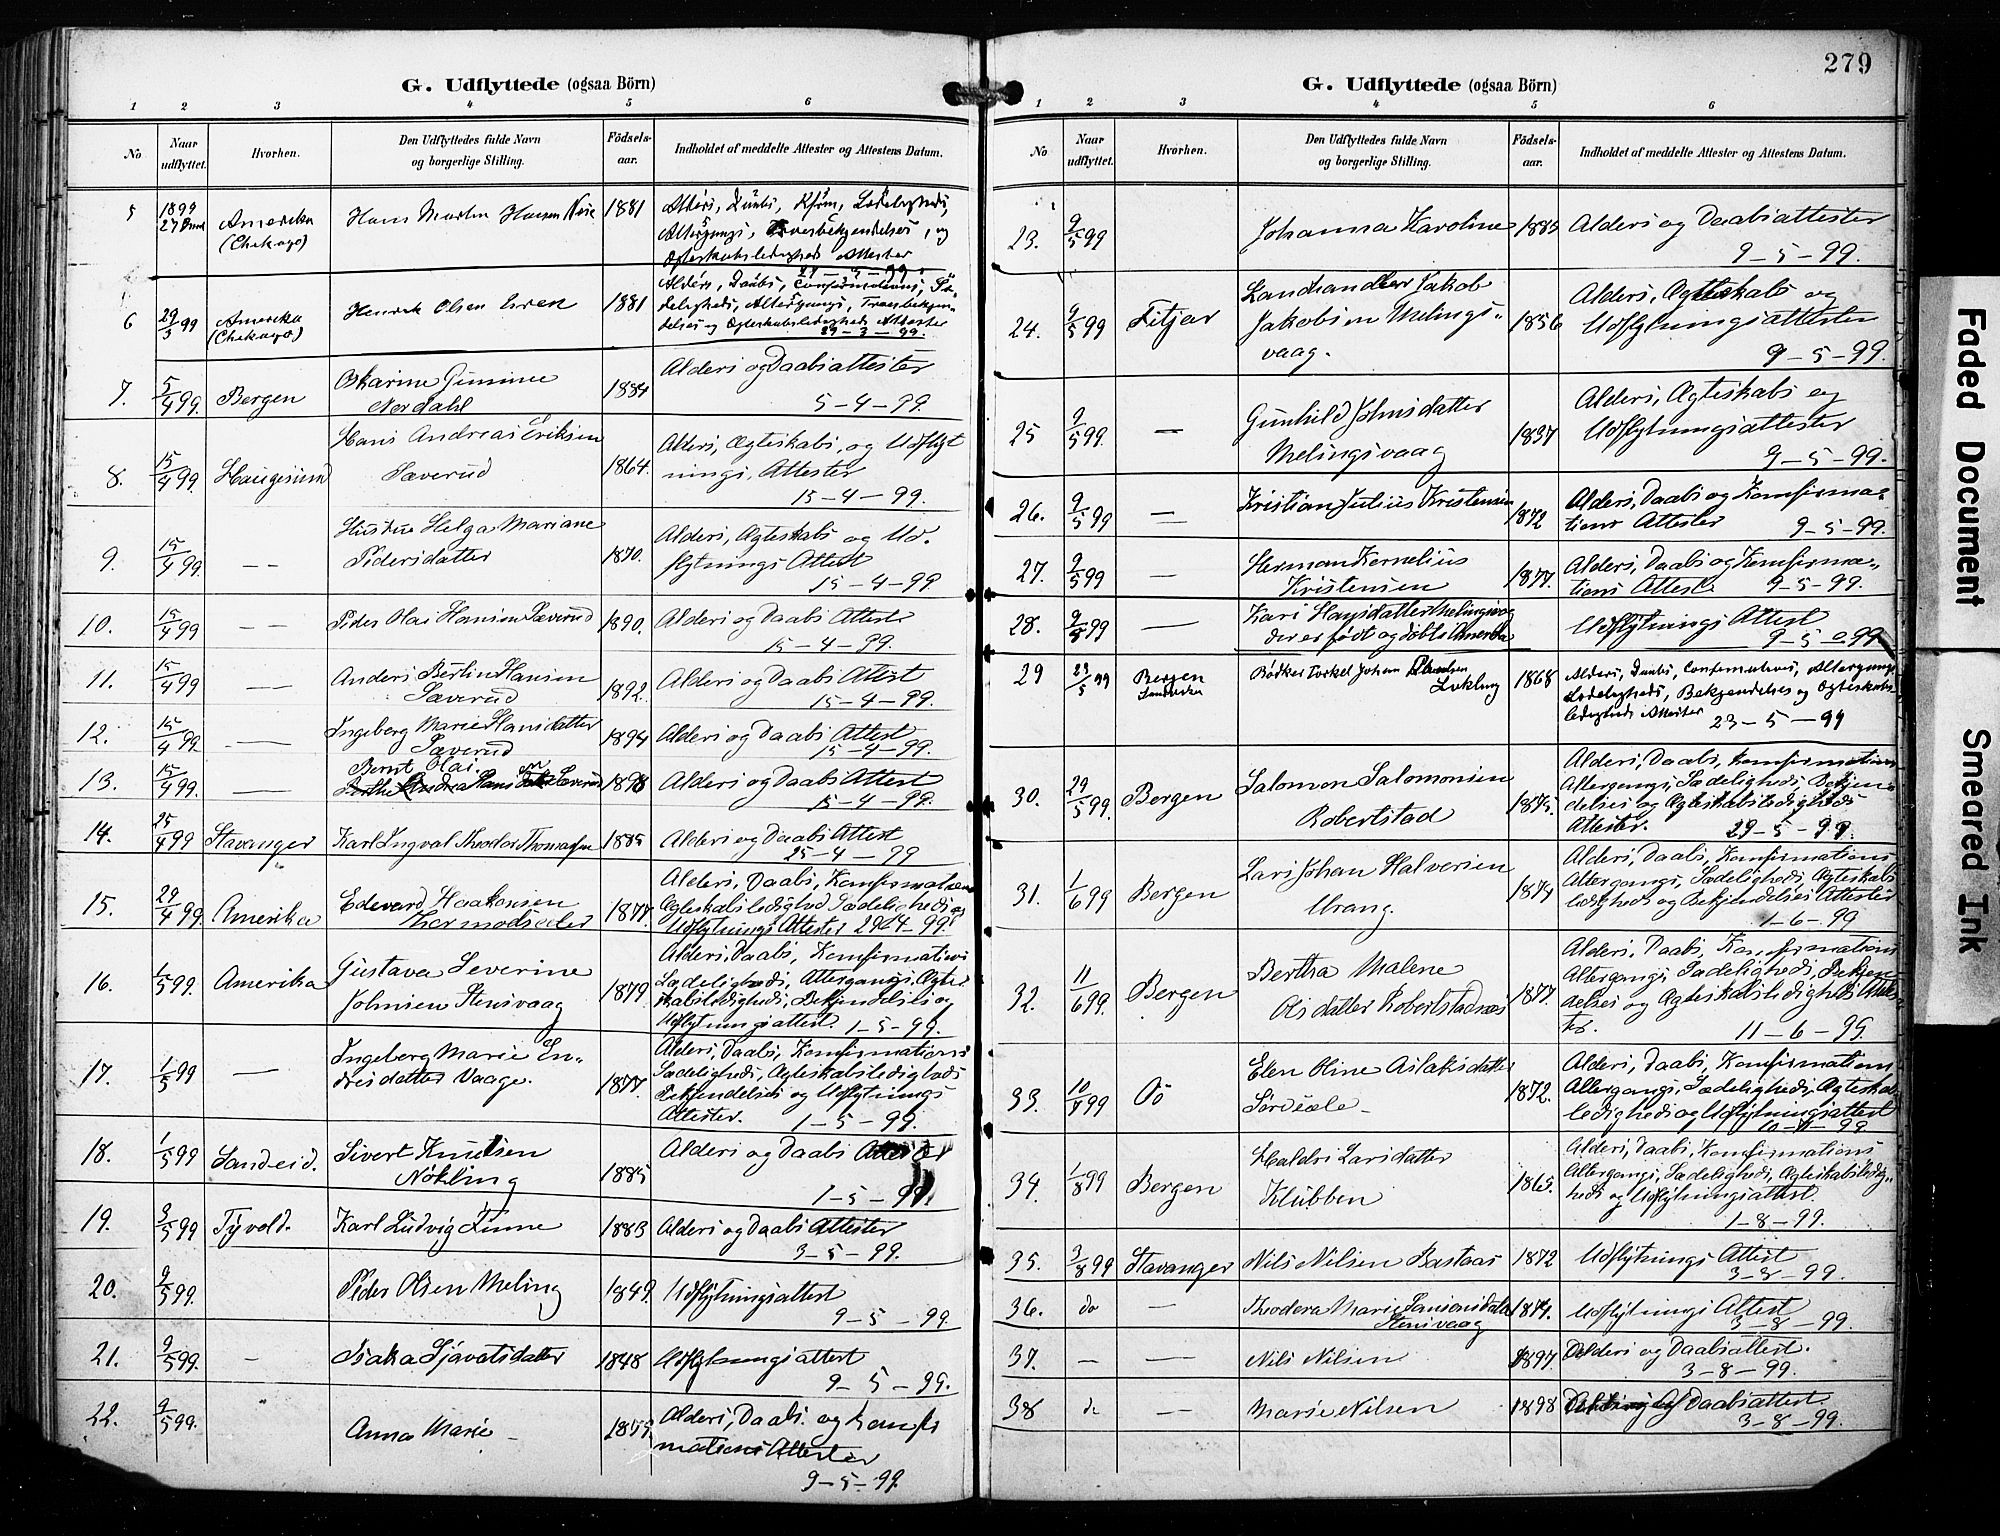 G. Udflyttede (ogsaa Börn)
1 2 3 4 5 6
No
Naar udflyttet.
Hvorhen.
Den Udflyttedes fulde Navn
og borgerlige Stilling.
Fødsels-
aar.
Indholdet af meddelte Attester og Attestens Datum.
5 1899 Amerika Hans Martin Hansen 1881
(Chekago)
Attester
6 29/3 99 Amerika Henrik Olsen 1881
(Chekago)
29-3-99.
7. 5/4 99. Bergen 1884 Alders og Daabsattester
Nordahl 5-4-99.
8. 15/4 99. Haugesund Hans Andreas Eriksen 1864. Alders, Ægteskabs, og Udflyt
Sæverud nings, Attester
15-4-99.
9. 15/4 99. — — Hustru Helga Mariane 1870. Alders, Ægteskabs og Ud-
Pedersdatter flytnings Attest
15-4-99.
10. 15/4 99 — — Peder Olai Hansen Sæverud 1890. Alders og Daabs Attest
15-4-99.
11. 15/4 99 — Anders Bertin Hansen 1892. Alders og Daabs Attest
Sæverud 15-4-99.
12. 15/4 99. — Ingeborg Marie Hansdatter 1894 Alders og Daabs Attest
Sæverud 15-4-99.
13. 15/4 99. — Bernt Olai 1898 Alders og Daabs Attest
Sæverud 15-4-99.
14. 25/4 99 Stavanger Karl Ingval Theodor Thomassen 1885 Alders og Daabs Attest
25-4-99
15. 29/4 99. Amerika Edvard Haakonsen 1877. Alders, Daabs, Konfirmations
Ægteskabsledighed Sædeligheds og
Udflytnings Attester 29-4-99.
16. 1/5 99. Amerika Gustava Severine 1879. Alders, Daabs, Konfirmations
Johnsen Stensvaag Sædeligheds, Altergangs, Ægte-
skabsledigheds, Bekjendelses og
Udflytningsattest. 1-5-99.
17. 1/5 99 — Ingeborg Marie En- 1877. Alders, Daabs, Konfirmations
dresdatter Vaage. Sædeligheds, Ægteskabsledigheds
Bekjendelses og Udflytnings
Attester. 1-5-99.
18. 1/5 99 Sandeid. Sivert Knutsen 1885 Alders og Daabs Attester
Nökling 1-5-99.
19. 3/5 99 Tysvold. Karl Ludvig 1883 Alders og Daabs Attester
3-5-99.
20. 9/5 99. Peder Olsen Meling 1849. Udflytningsattest
9-5-99.
21. 9/5 99. — Isaka Sjavatsdatter 1848 Udflytningsattest
9-5-99.
22. 9/5 99. " Anna Marie Alders, Daabs og Konfir
mations Attester
9-5-99.
279
G. Udflyttede (ogsaa Börn)
1 2 3 4 5 6
No
Naar udflyttet.
Hvorhen.
Den Udflyttedes fulde Navn
og borgerlige Stilling.
Fødsels-
aar.
Indholdet af meddelte Attester og Attestens Datum.
23. 9/5 99 Johanna Karoline Alders og Daabsattester
9-5-99.
24. 9/5 99 Fitjar Landhandler Jakob 1856 Alders, Ægteskabs og
Jakobsen Melings- Udflytningsattester
vaag. 9-5-99.
25 9/5 99. — Gunhild Johnsdatter 1837 Alders, Ægteskabs og
Melingsvaag Udflytningsattester
9-5-99.
26. 9/5 99 — Kristian Julius Kristensen 1872 Alders, Daabs og Konfirma-
tions Attester 9-5-99.
27. 9/5 99 — Herman Kornelius 1877. Alders, Daabs og Konfirma-
Kristensen tions Attest. 9-5-99.
28. 9/5 99 — Kari Hansdatter Melingsvag Udflytnings Attest
der er født og døbt i Amerika 9-5-99.
29 23/5 99 Bergen Bødker Torkel Johan 1868 Alders, Daabs, Confirmations, Altergangs
Sædeligheds, Bekjendelses og Ægteskabs
ledigheds Attester 23-5-99
30. 29/5 99. Bergen Salomon Salomonsen 1875. Alders, Daabs, Konfirmations
Robertstad Altergangs, Sædeligheds, Bekjen-
delses og Ægteskabsledigheds
Attester. 29-5-99.
31. 1/6 99 Bergen Lars Johan Halvorsen 1874 Alders, Daabs, Konfirmations
Urang. Altergangs, Sædeligheds, Ægteskabs
ledigheds og Bekjendelses Attester
1-6-99
32. 11/6 99. Bergen Bertha Malene 1877. Alders, Daabs, Konfirmations
Olsdatter Robertstadnæs Altergangs, Sædeligheds, Bekjen
delses og Ægteskabsledigheds Attes
ter. 11-6-99.
33. 10/7 99 Oö Elen Oline Aslaksdatter 1872. Alders, Daabs, Konfirmations
Altergangs, Sædeligheds, Ægteskabs
ledigheds og Udflytningsattest
34. 1/8 99 Bergen Larsdatter 1865. Alders, Daabs, Konfirmations
Klubben Altergangs, Sædeligheds, Ægteskabsledig-
heds og Udflytningsattest.
1-8-99.
35. 3/8 99 Stavanger Nils Nilsen Bastaas 1872 Udflytnings Attest
3-8-99.
36. do — Theodora Marie 1874. Udflytnings Attest
Stensvaag 3-8-99.
37. — — Nils Nilsen 1897. Alders og Daabsattest.
3-8-99.
38 do — Marie Nilsen 1898 Daabsattest
3-8-99.
Faded Document
Smeared Ink